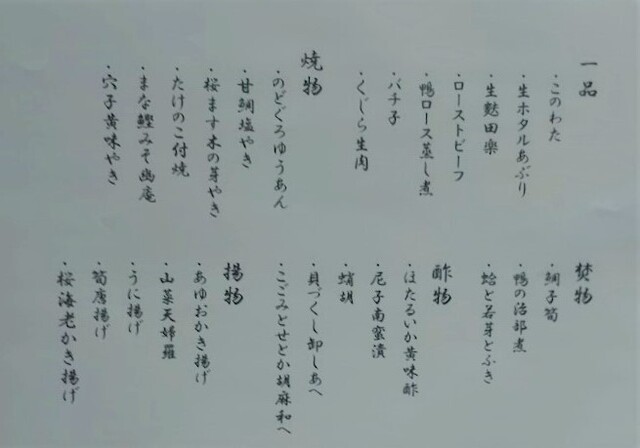 一品
・このわた
・生ホタルあぶり
・生麩田楽
・ローストビーフ
・鴨ロース蒸し煮
・バチ子
・くじら生肉
焼物
・のどぐろゆうあん
・甘鯛塩やき
・桜ます木の芽やき
・たけのこ付焼
・まな鰹みそ幽庵
・穴子黄味やき
焚物
・鯛子筍
・鴨の治部煮
・蛤と若芽とふき
酢物
・ほたるいか黄味酢
・尼子南蛮漬
・蛸胡
・貝づくし卸しあへ
・こごみとせとか胡麻和へ
揚物
・あゆおかき揚げ
・山菜天婦羅
・うに揚げ
・筍唐揚げ
・桜海老かき揚げ